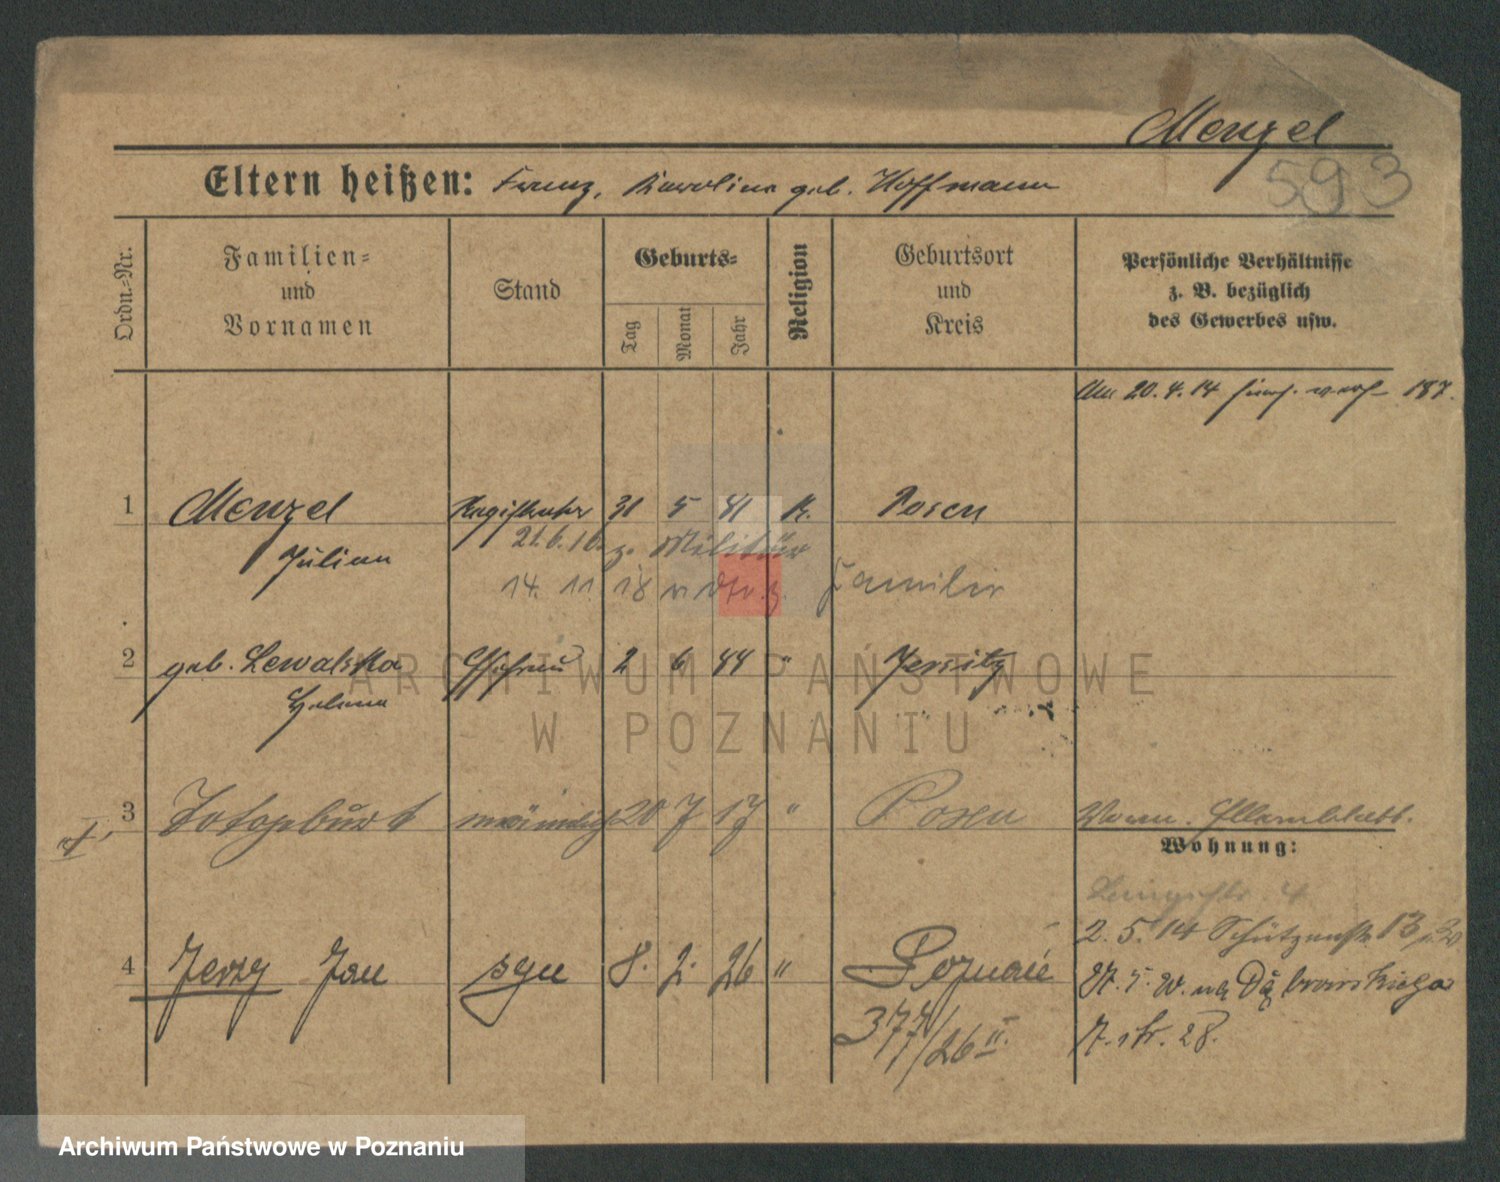 Menzel
593
Eltern heißen: Franz, Karolina geb. Hoffmann
Ordn.=Nr.
Familien=
und
Vornamen
Stand
Geburts=
Tag
Monat
Jahr
Religion
Geburtsort
und
Kreis
Persönliche Verhältnisse
z. B. bezüglich
des Gewerbes usw.
Am 20.4.14 187.
1 Menzel Registrator 31 5 81 K. Posen
Julian
21.6.16. z. Militär
14. 11 18 v. z. Familie
2 geb. Lewalska Ehefrau 2 6 44 " Jersitz
Helena
3 Totgeburt männlich 20 7 17 " Posen
Wohnung:
4
2. 5. 14 Schützenstr. 13
4 Jerzy Jan syn 8. 2. 26 " Poznań
W. na Dąbrowskiego
377/26 II.
28.
ARCHIWUM PAŃSTWOWE
W POZNANIU
Archiwum Państwowe w Poznaniu